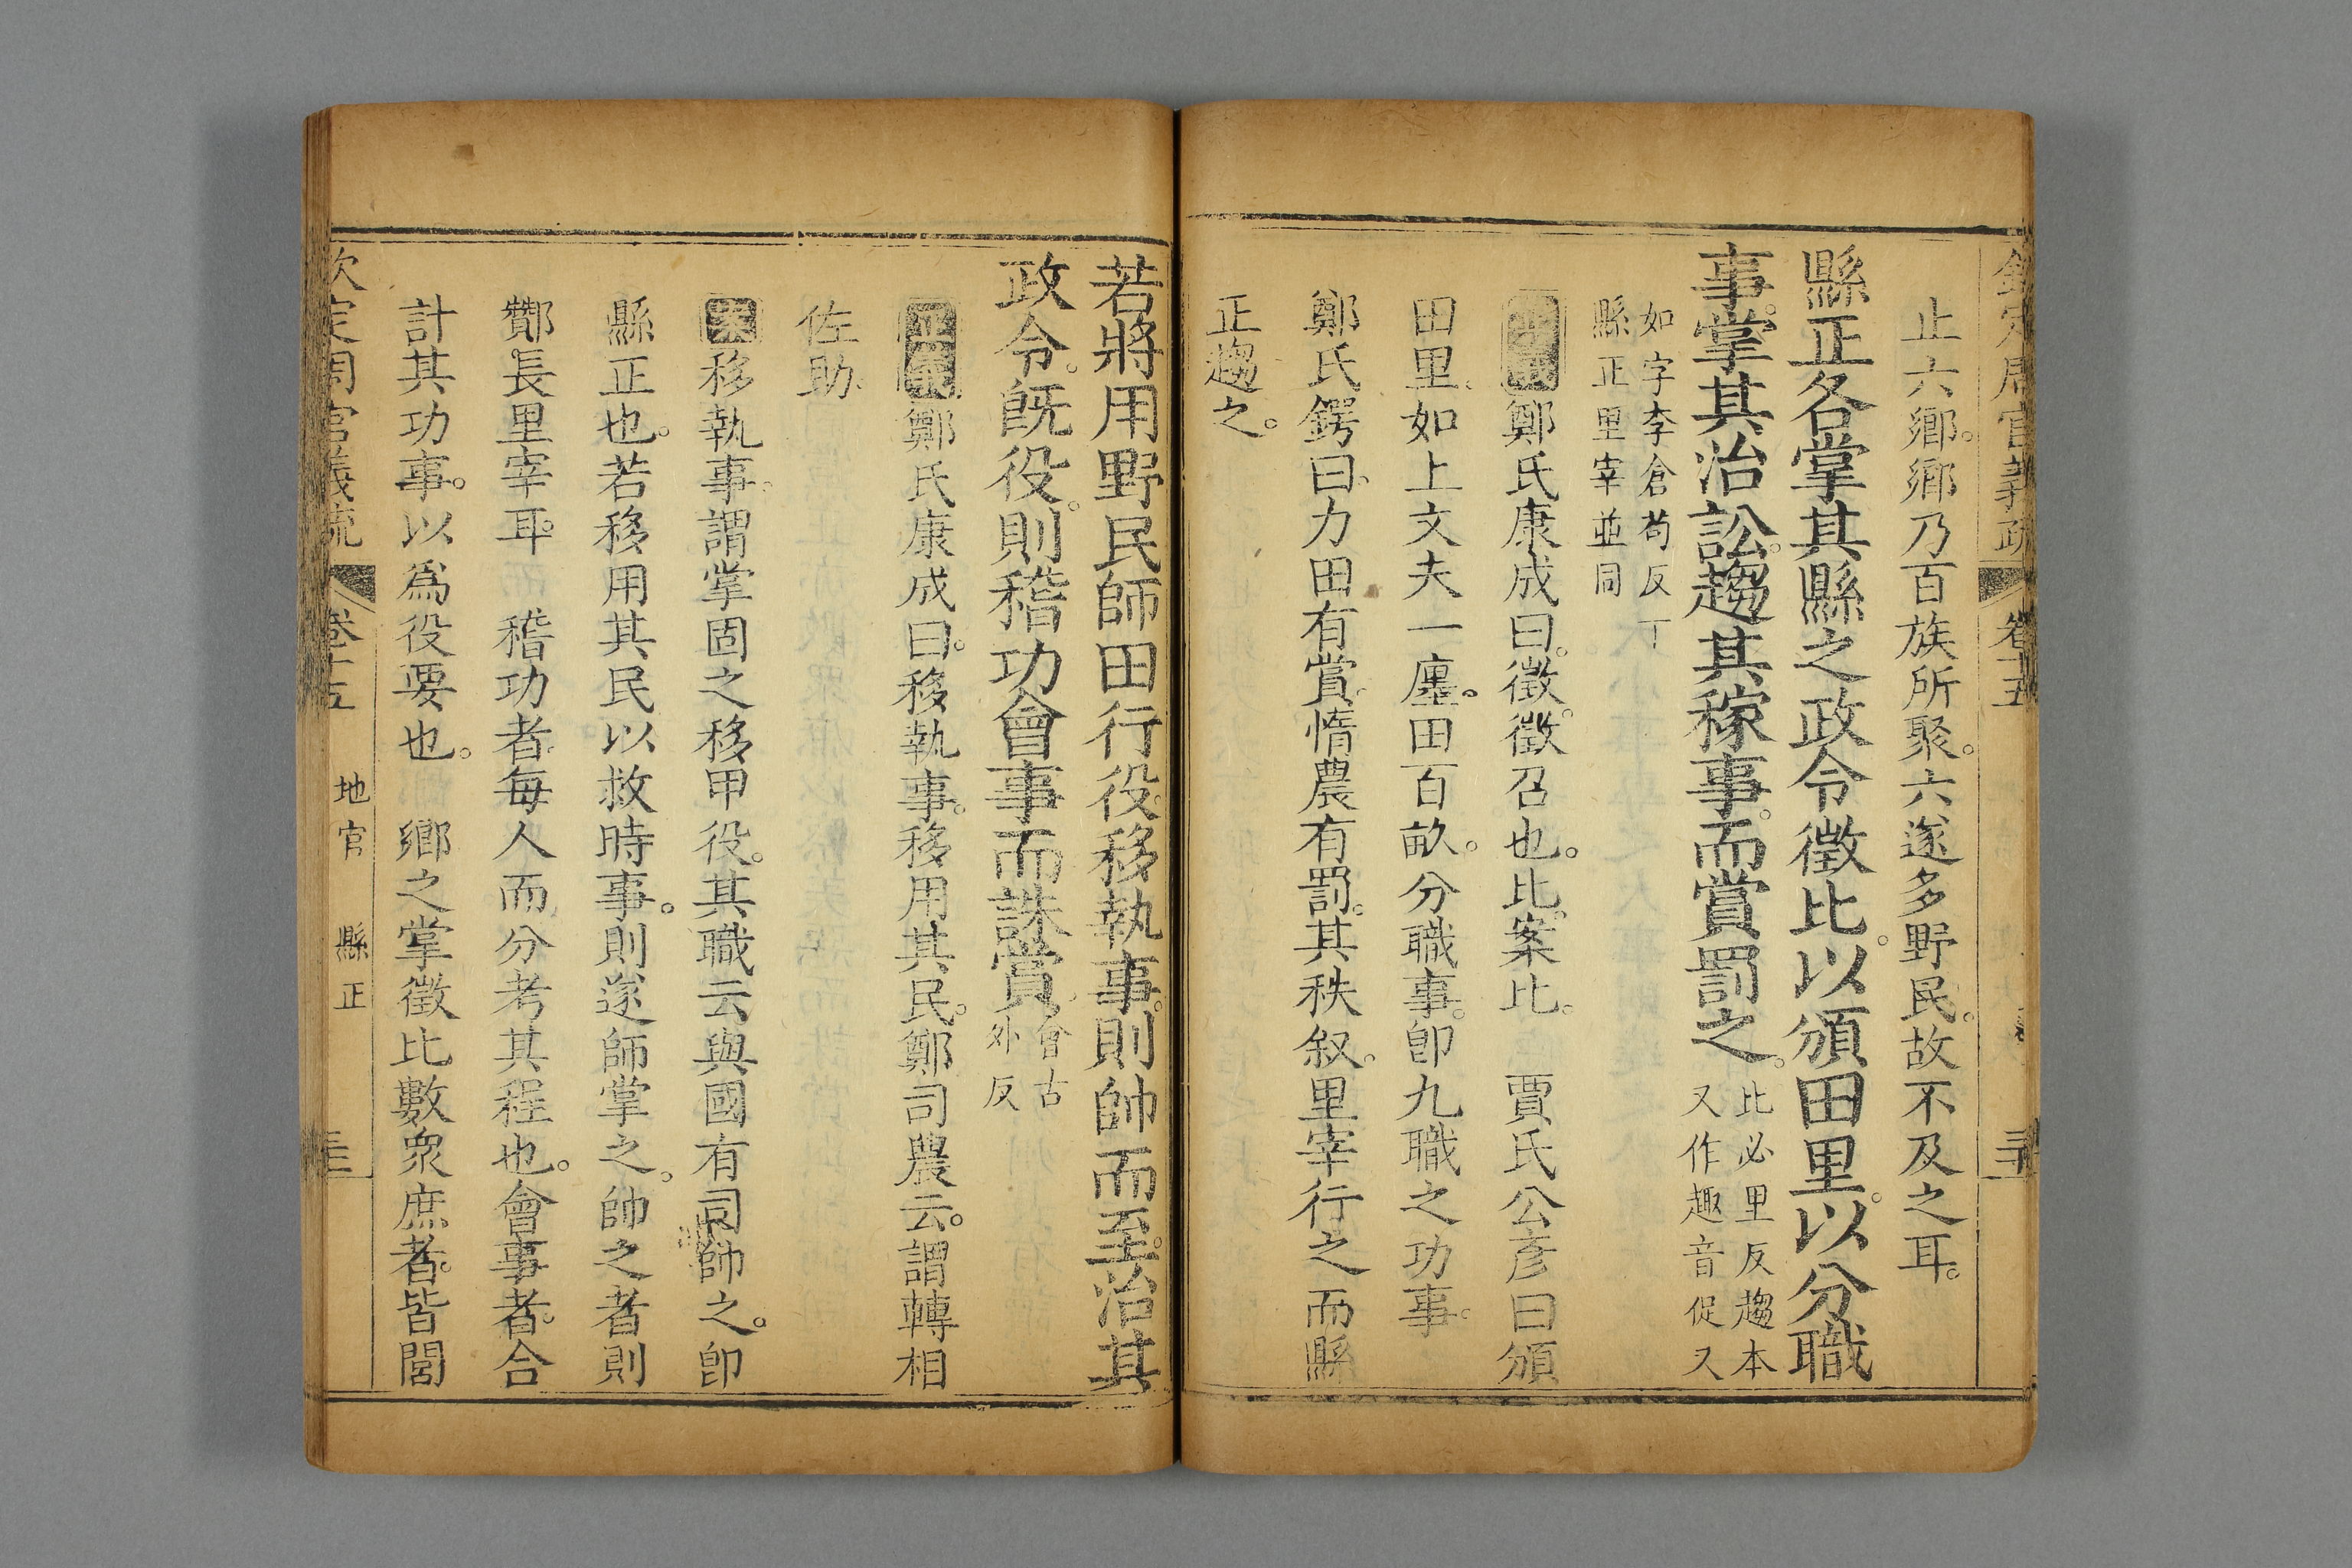 欽定周官義疏 卷十五
止六鄉。鄉乃百族所聚。六遂多野民。故不及之耳。
縣正各掌其縣之政令徵比。以頒田里。以分職
事。掌其治訟。趨其稼事。而賞罰之。比必里反趨本
又作趣音促又
如字李倉苟反丁
縣正里宰並同
正義鄭氏康成曰。徵。徵召也。比。案比。 賈氏公彥曰頒
田里。如上文夫一廛。田百畝。分職事。卽九職之功事。
鄭氏鍔曰。力田有賞。惰農有罰。其秩叙。里宰行之而縣
正趨之。
若將用野民師田行役。移執事。則帥而至。治其
政令。旣役。則稽功會事而誅賞。會古
外反
正義鄭氏康成曰。移執事。移用其民。鄭司農云。謂轉相
佐助。
案移執事。謂掌固之移甲役。其職云與國有司帥之。卽
縣正也。若移用其民以救時事。則遂師掌之。帥之者則
酇長里宰耳。 稽功者。每人而分考其程也。會事者。合
計其功事。以爲役要也。 鄉之掌徵比數衆庶者。皆閭
欽定周官義疏 卷十五 地官 縣正